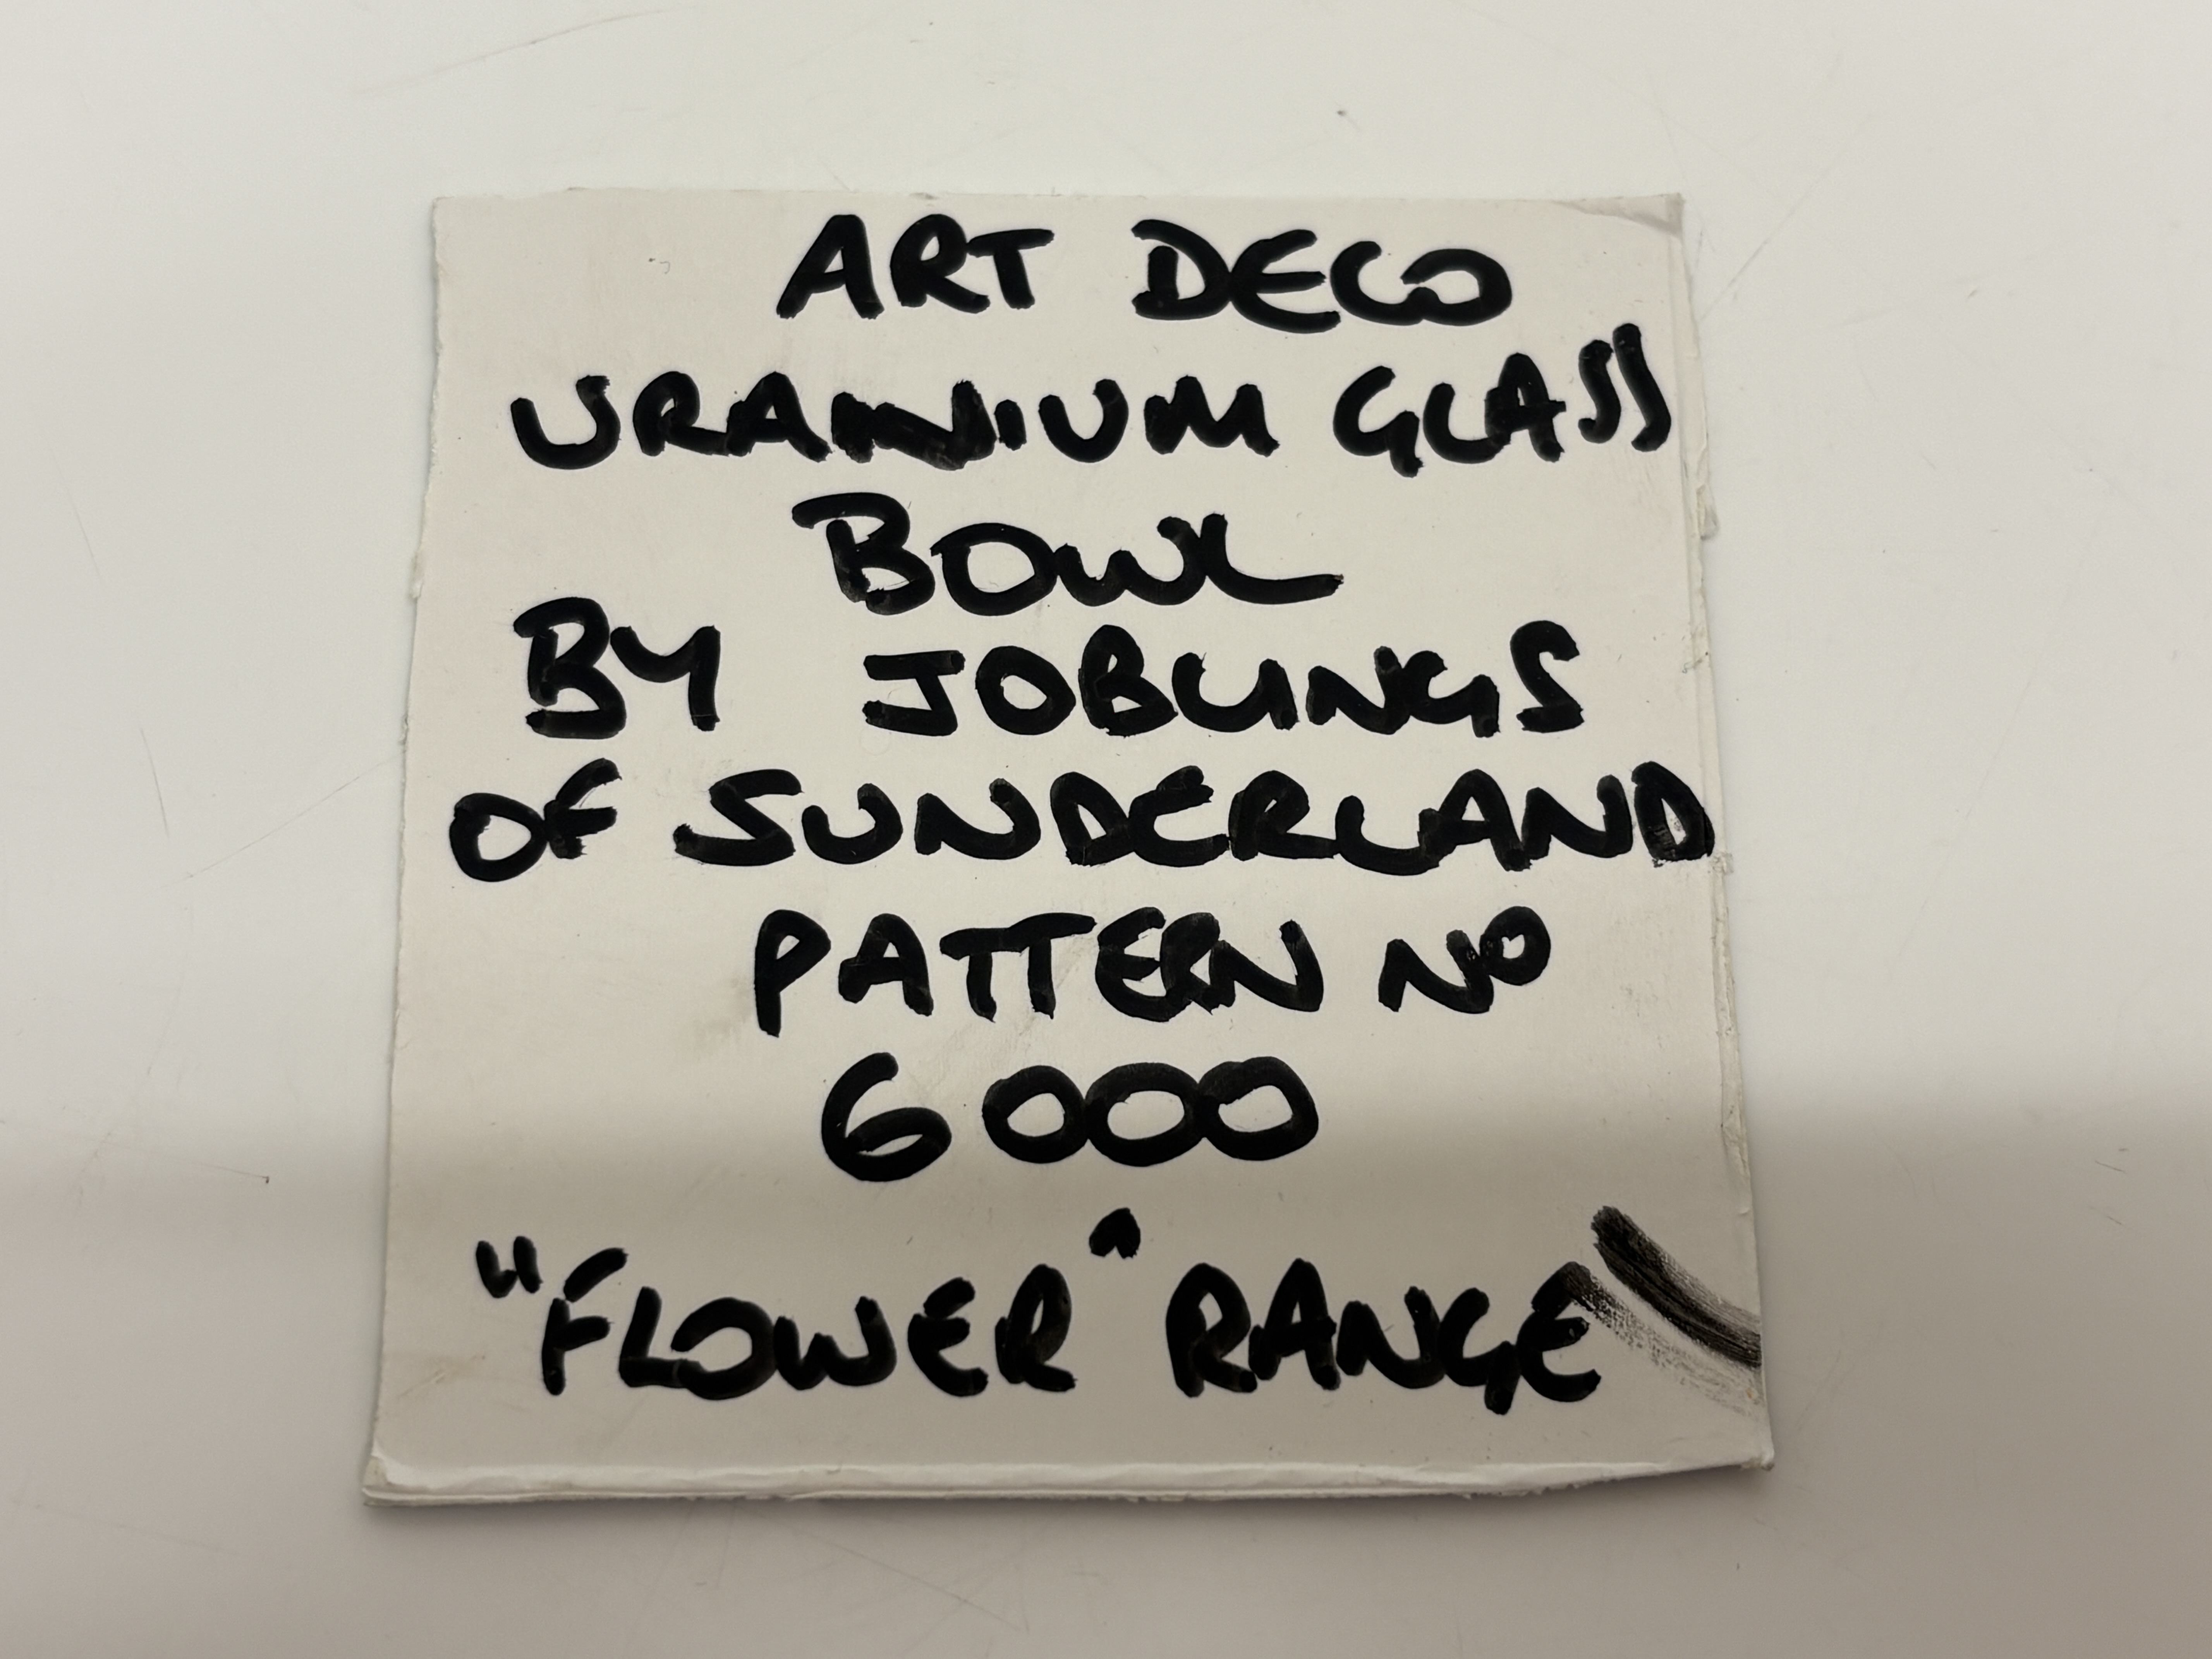 ART DECO
URANIUM GLASS
BOWL
BY JOBLINGS
OF SUNDERLAND
PATTERN NO
6000
"FLOWER" RANGE